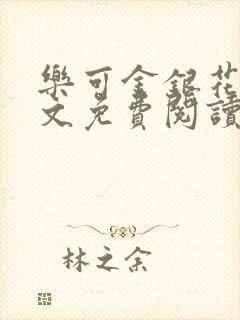 樂可金銀花
文免費閱讀
林之余